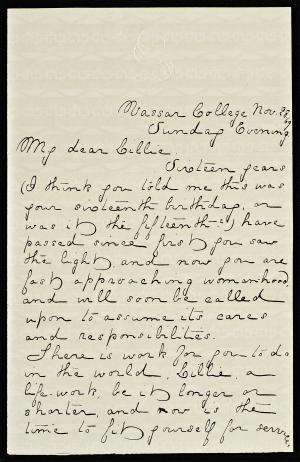 Vassar College Nov. 28
Sunday Evening
My dear Lillie.
Sixteen years
(I think you told me this was
your sixteenth birthday, or
was it the fifteenth?) have
passed since first you saw
the light, and now you are
fast approaching womanhood,
and will soon be called
upon to assume its cares
and responsibilities.
There is work for you to do
in the world, Lillie, a
life-work, be it longer or
shorter, and now is the
time to fit yourself for service.